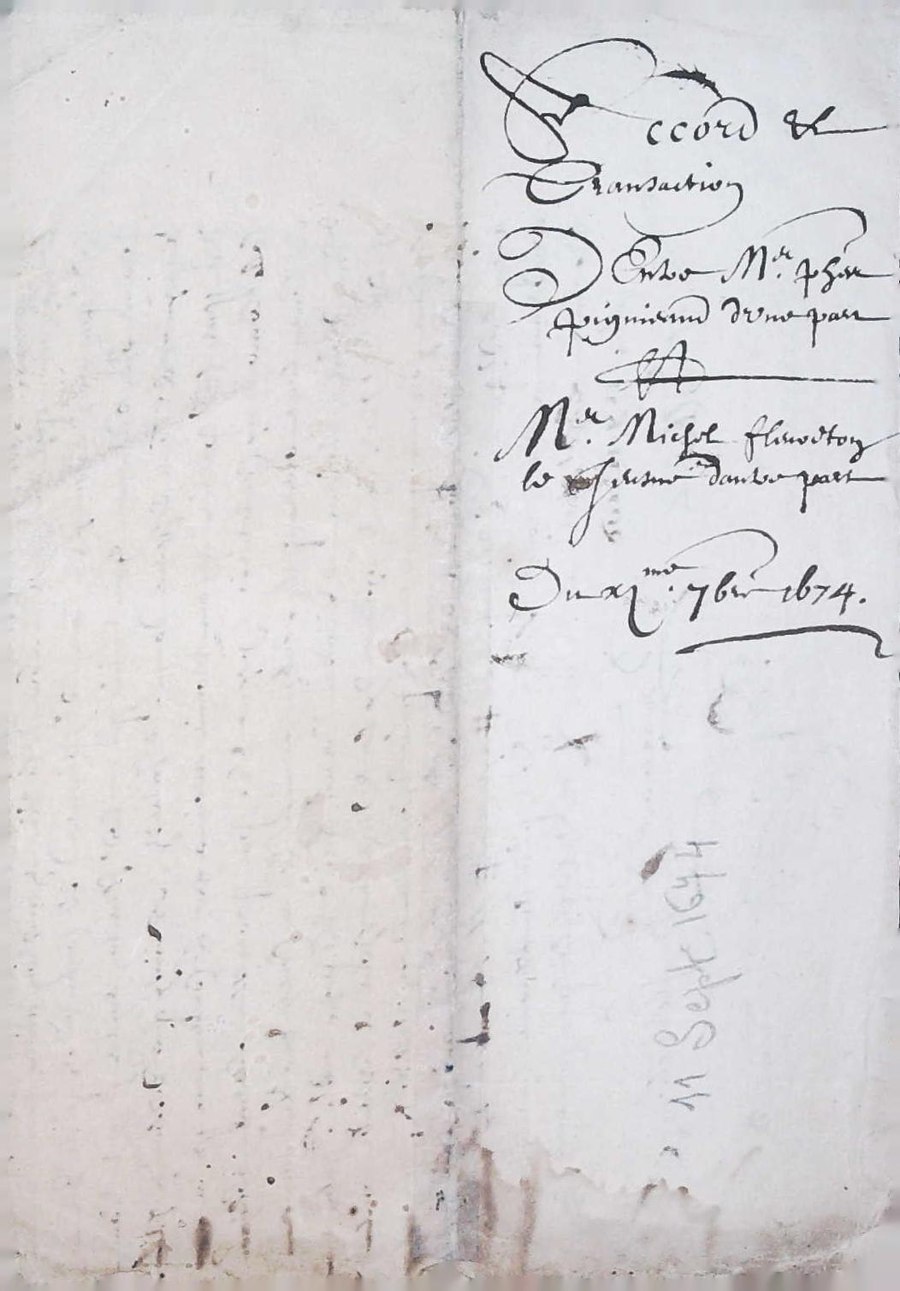 Accord &
Transaction
Entre Mer. pher
d'vne part
Mer. Michel
le d'autre part
Du xjme. 7bre 1674.
11 Sept. 1674